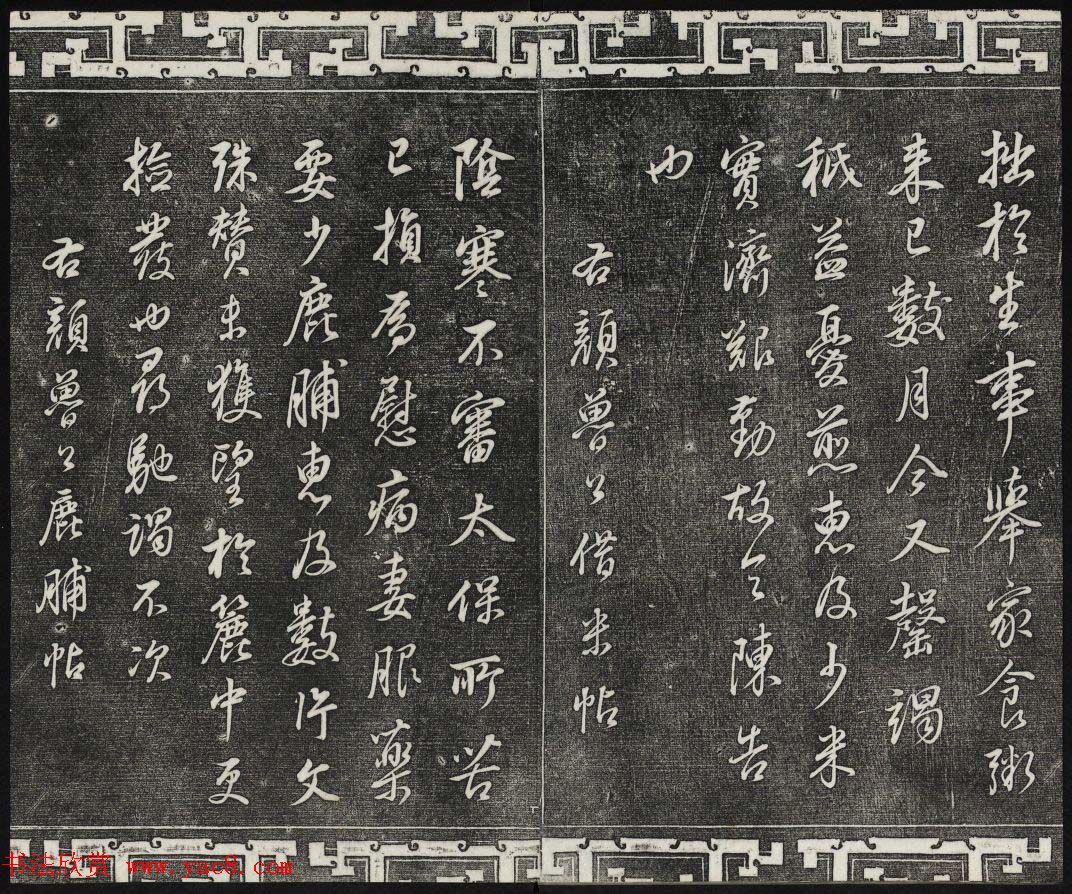 拙於生事舉家食粥
来已數月今又罄竭
秖益憂煎惠及少米
實濟艱勤故令陳告
也
右顔魯公借米帖
陰寒不審太保所苦
已損爲慰病妻服藥
要少鹿脯惠及數片文
殊贊未獲望於麓中更
撿發也尋馳謁不次
右顔魯公鹿脯帖
书法欣赏 www.yac8.com